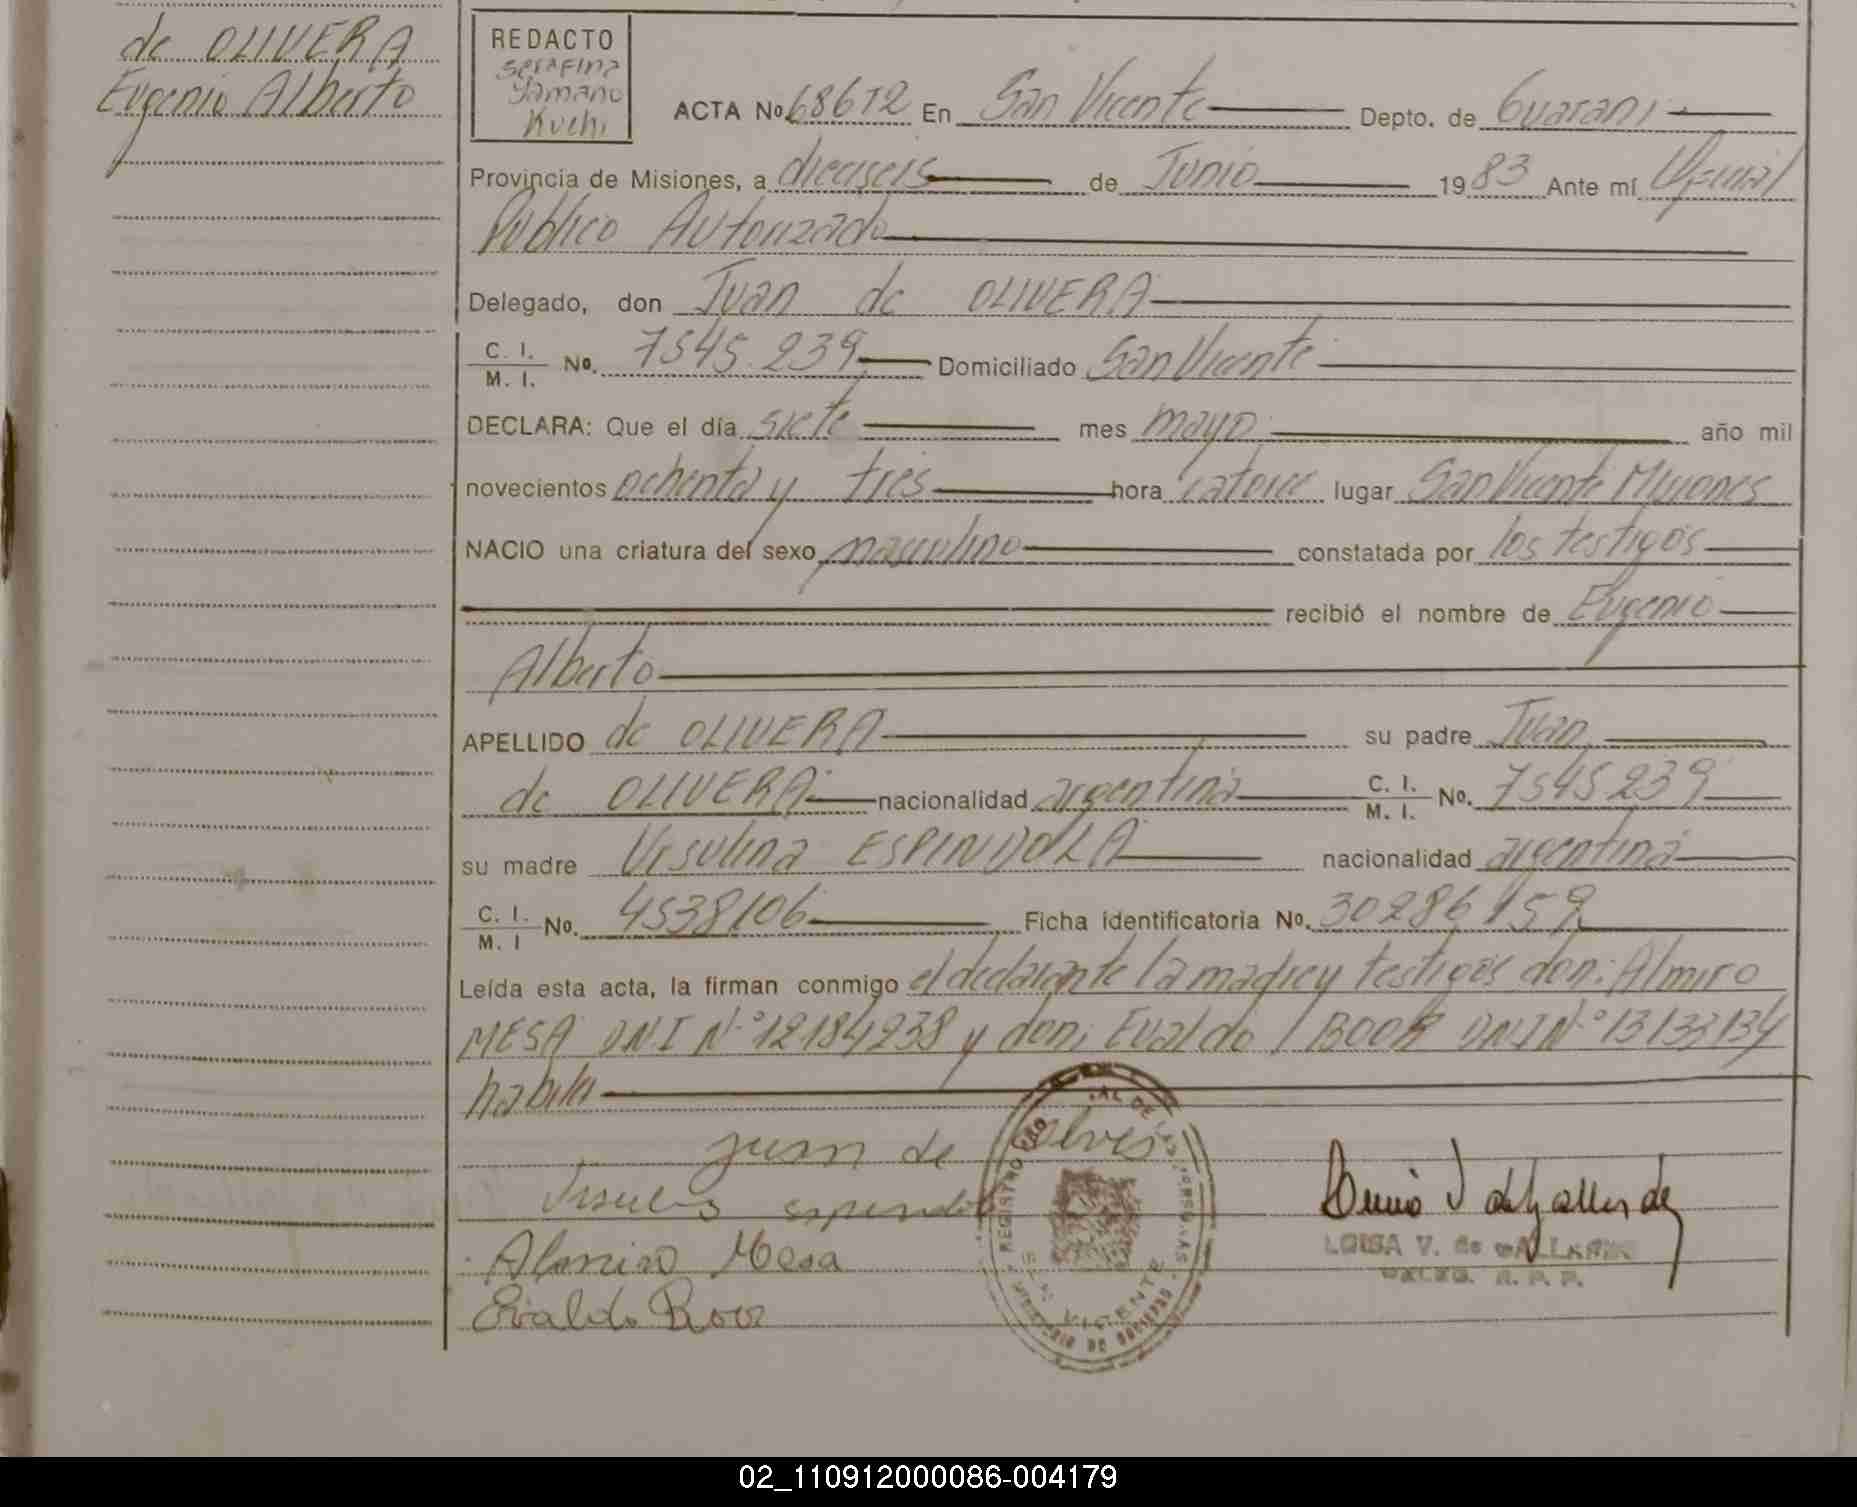 de OLIVERA
Eugenio Alberto
REDACTO
Serafina
Yamano
Kuchi
ACTA No. 68612 En San Vicente Depto. de Guarani
Provincia de Misiones, a dieciseis de Junio 1983 Ante mí Oficial
Publico Autorizado
Delegado, don Juan de OLIVERA
C. I. / M. I. No. 7545.239 Domiciliado San Vicente
DECLARA: Que el día siete mes mayo año mil
novecientos ochenta y tres hora catorce lugar San Vicente Misiones
NACIO una criatura del sexo masculino constatada por los testigos
recibió el nombre de Eugenio
Alberto
APELLIDO de OLIVERA su padre Juan
de OLIVERA nacionalidad argentina C. I. / M. I. No. 7545239
su madre Ursulina ESPINDOLA nacionalidad argentina
C. I. / M. I No. 4538106 Ficha identificatoria No. 30286159
Leída esta acta, la firman conmigo el declarante la madre y testigos don: Almiro
MESA DNI Nº 12184238 y don: Evaldo DNI Nº 13133134
habiles
juan de
Almiro Mesa
Evaldo
REGISTRO
SAN VICENTE
MINISTERIO DE GOBIERNO
LUISA V. de